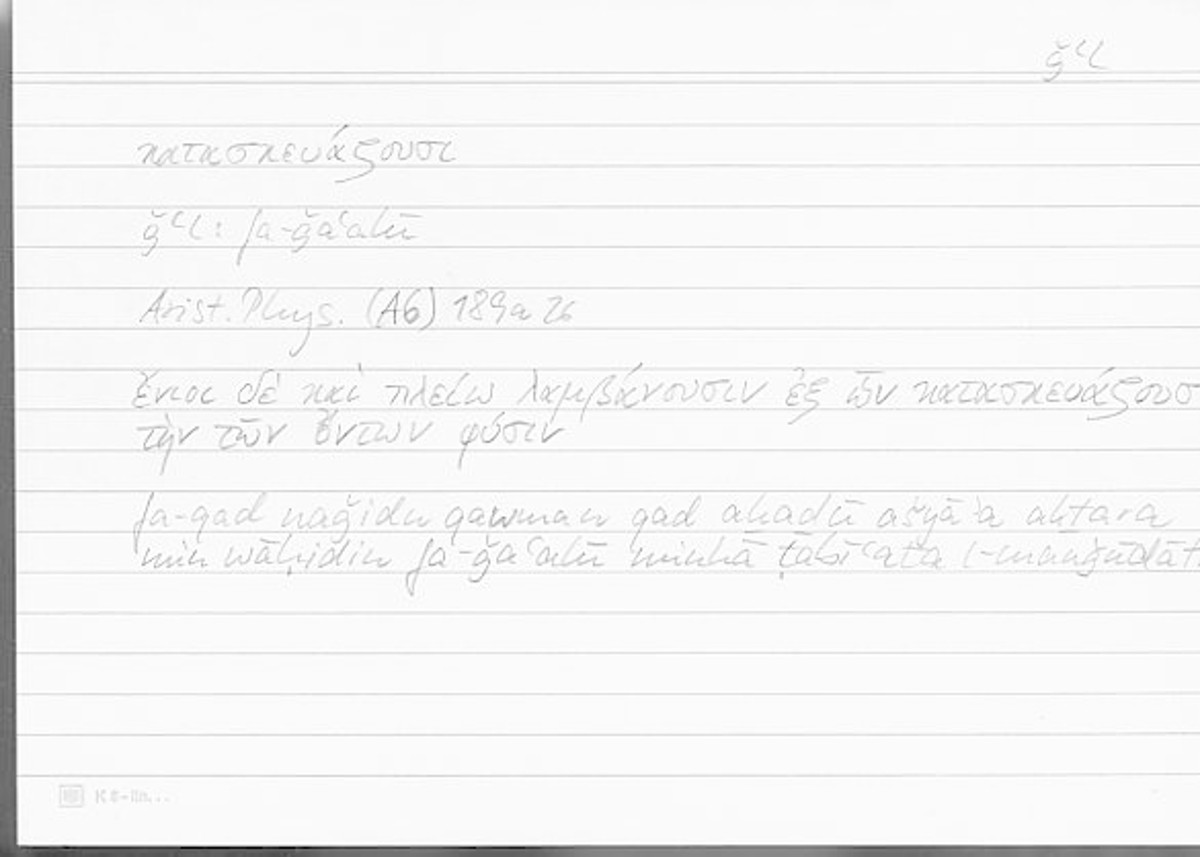 ǧʿl
κατασκευάζουσι
ǧʿl: fa-ǧaʿalū
Arist. Phys. (A6) 189a26
ἔνιοι δὲ καὶ πλείω λαμβάνουσιν ἐξ ὧν κατασκευάζουσ
τὴν τῶν ὄντων φύσιν
fa-qad naǧidu qawman qad aḫaḏū ašyāʾa akṯara
min wāḥidin fa-ǧaʿalū minhā ṭabīʿata l-mauǧūdāti